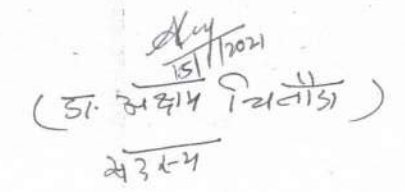 15/11/2021
(डा. अक्षाम चित्तौडा)
सदस्य